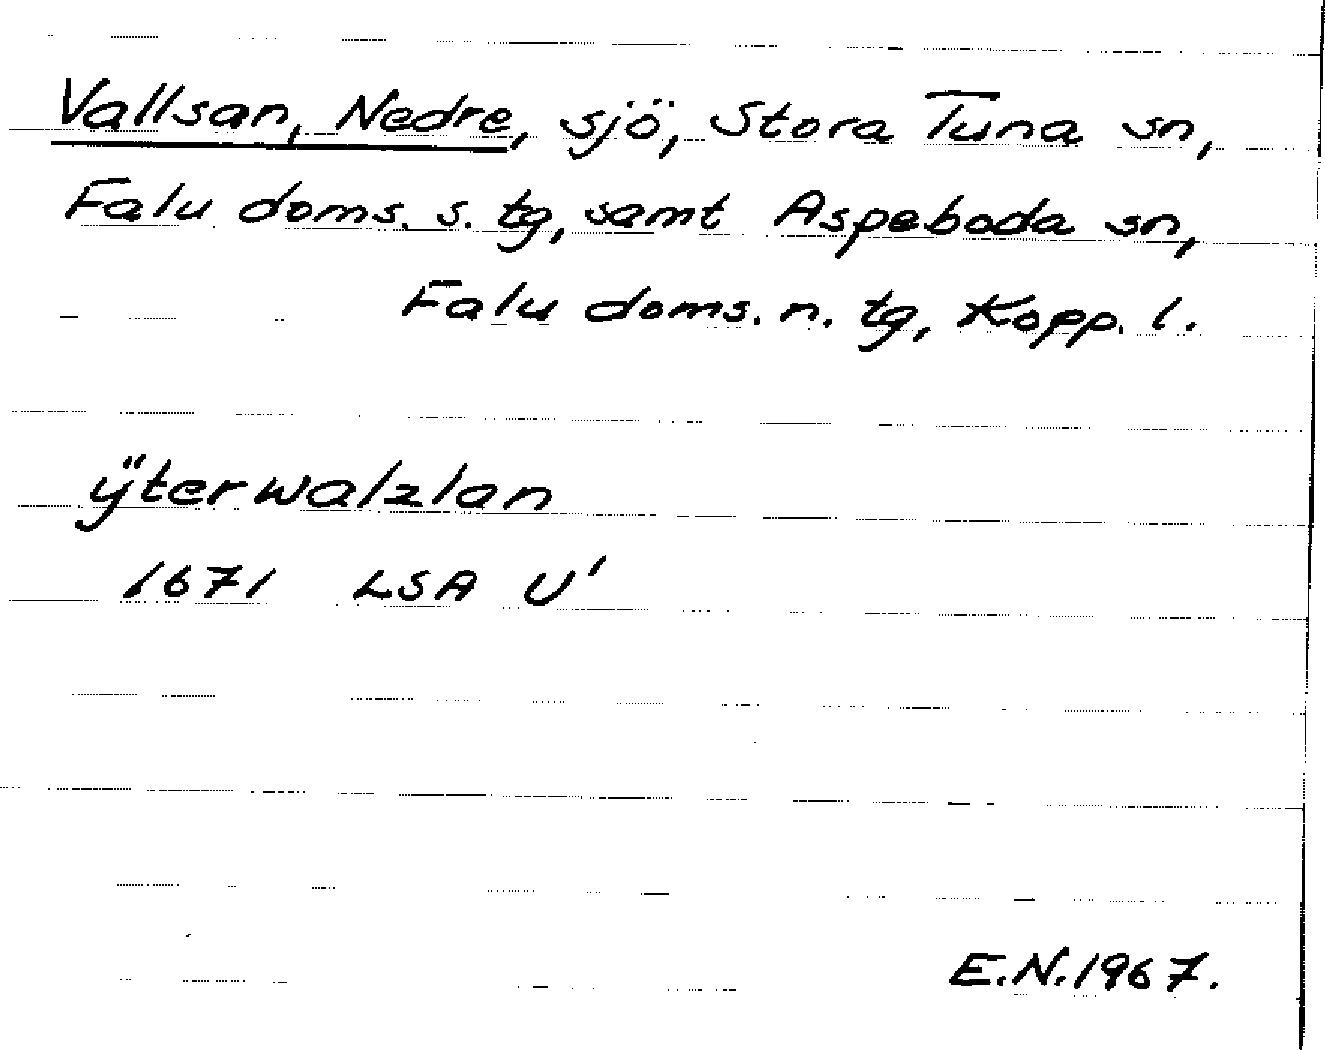 Vallsan, Nedre, sjö, Stora Tuna sn,
Falu doms. s. tg, samt Aspeboda sn,
Falu doms. n. tg, Kopp. l.
ÿterwalzlan
1671 LSA U'
E.N. 1967.